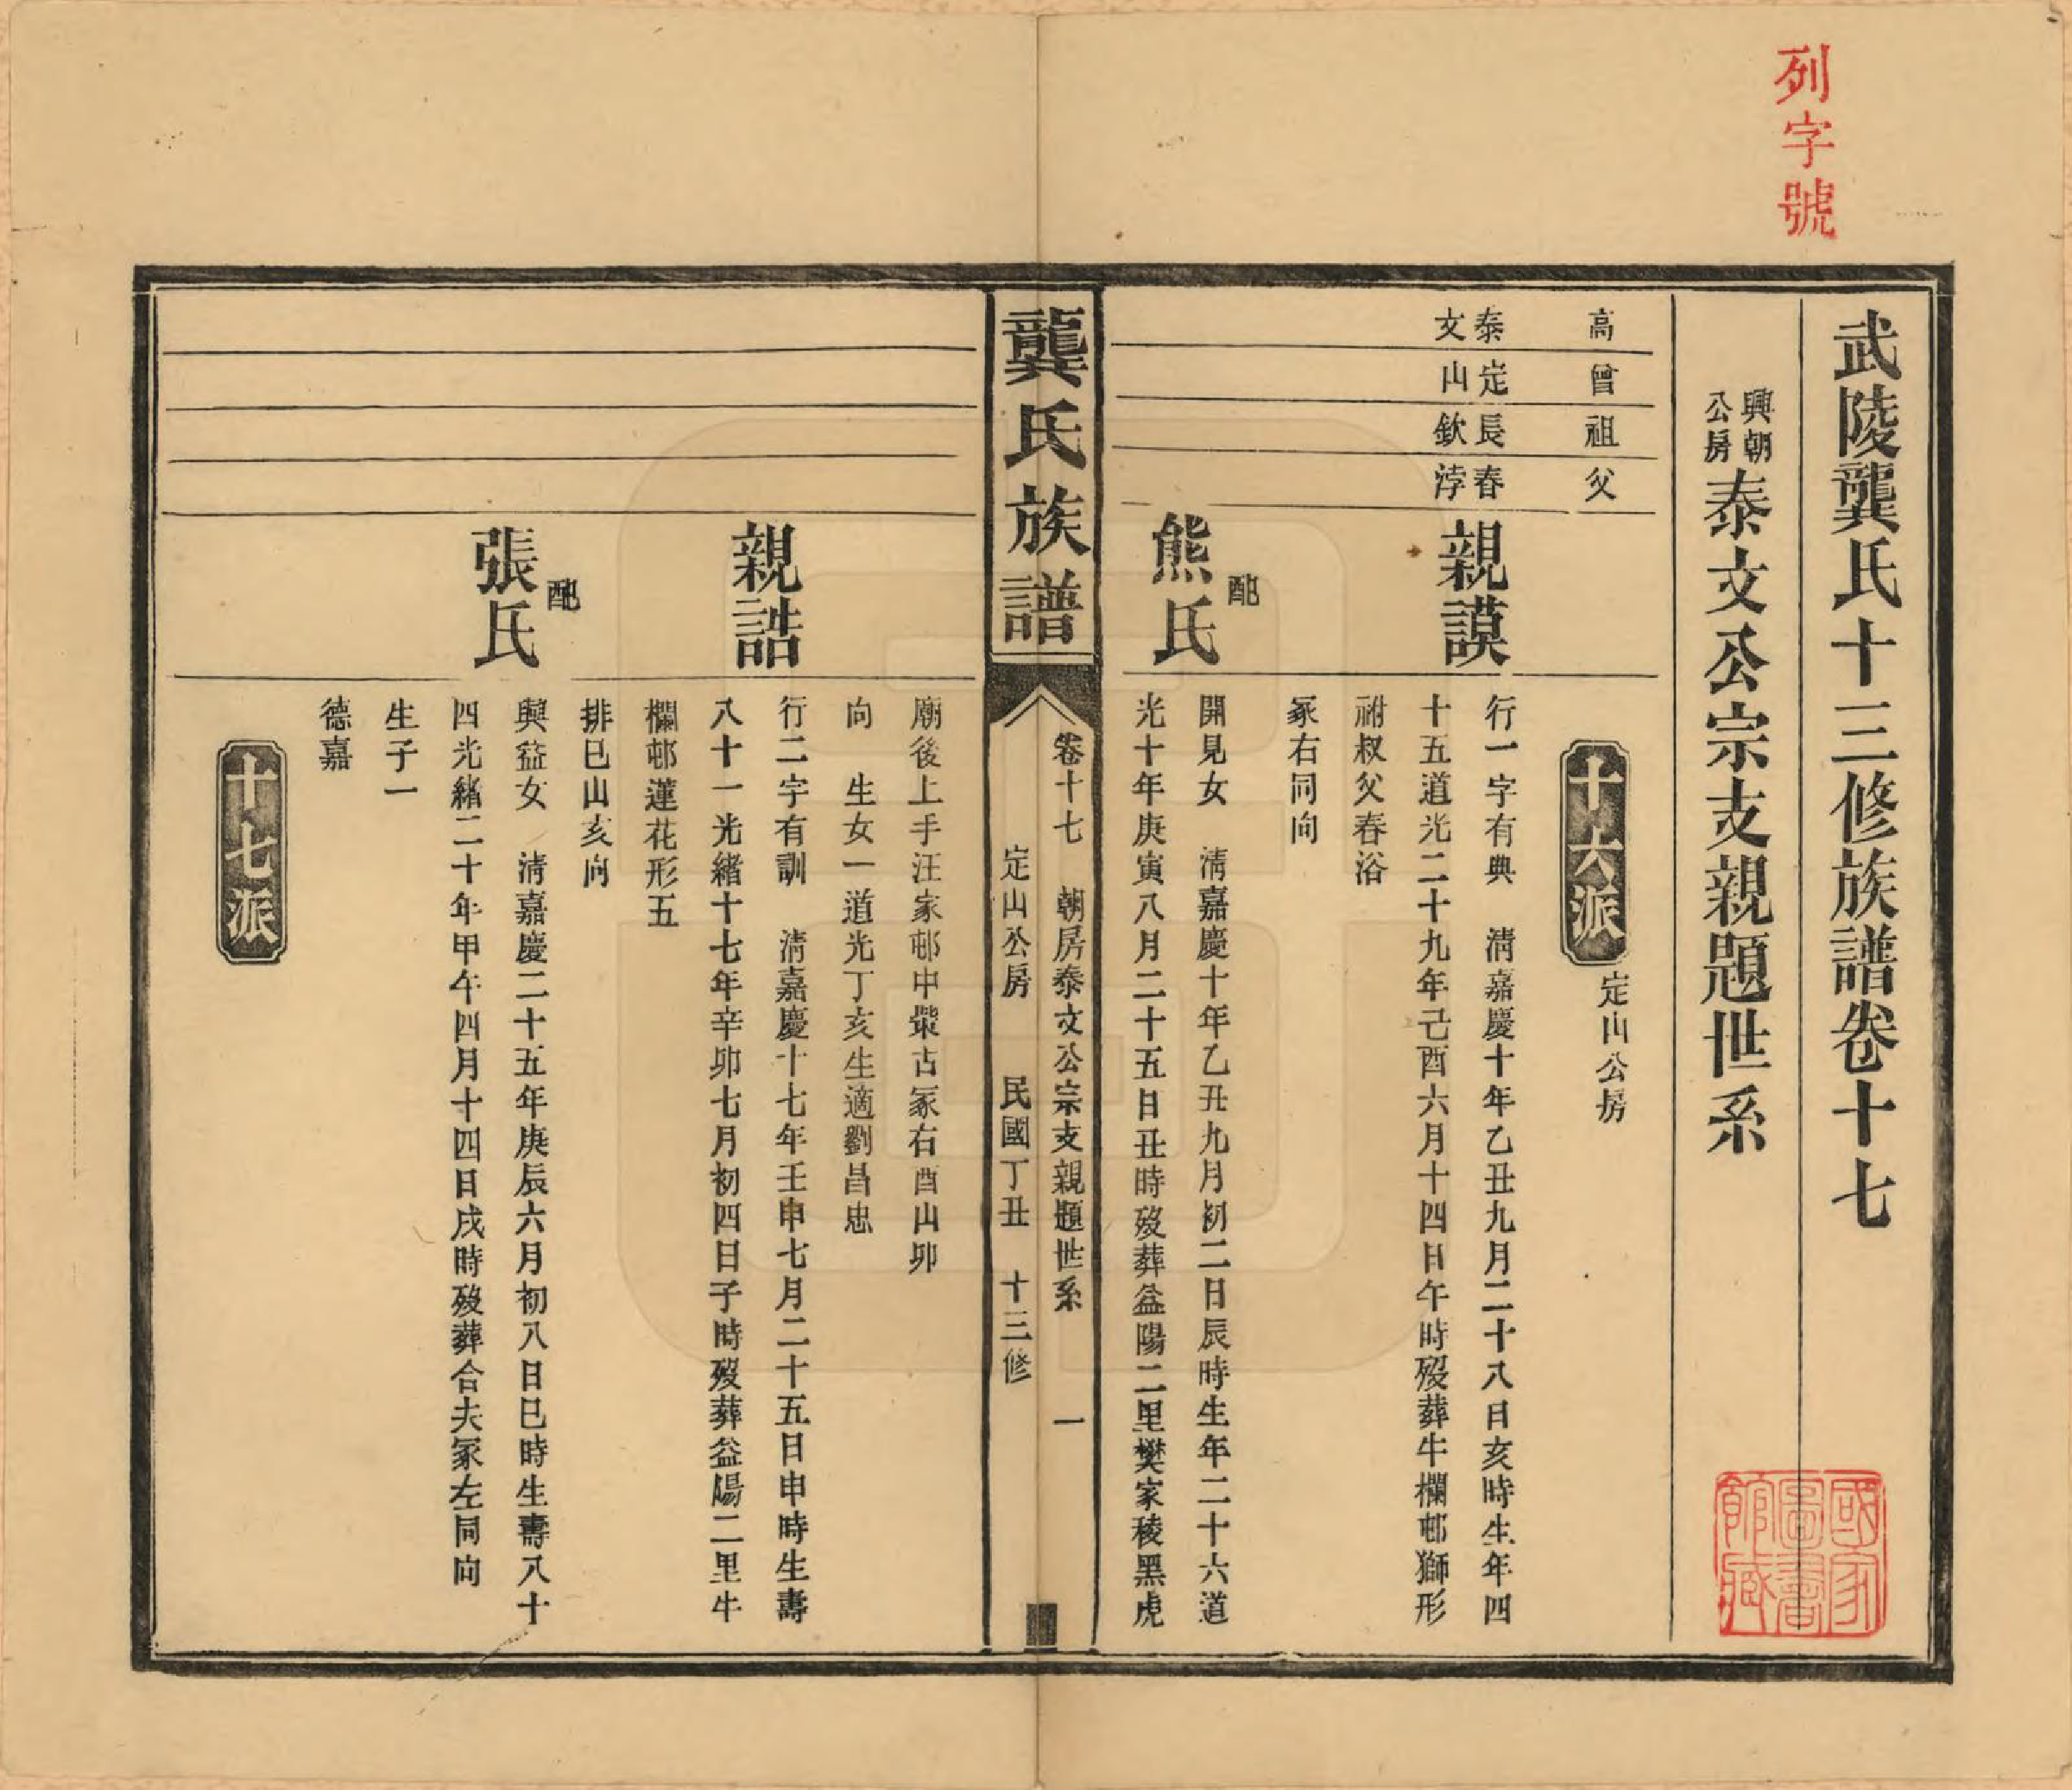 列字號
武陵龔氏十三修族譜卷十七
興朝公房泰文公宗支親題世系
高 曾 祖 父
十六派 定山公房
泰文 定山 長欽 春浡
親謨
行一字有典 清嘉慶十年乙丑九月二十八日亥時生年四
十五道光二十九年己酉六月十四日午時歿葬牛欄邨獅形
祔叔父春浴
冢右同向
配
熊氏
開見女 清嘉慶十年乙丑九月初二日辰時生年二十六道
光十年庚寅八月二十五日丑時歿葬益陽二里樊家稜黑虎
龔氏族譜
卷十七 朝房泰文公宗支親題世系 一
定山公房 民國丁丑 十三修
廟後上手汪家邨中癸古冢右酉山卯
向 生女一道光丁亥生適劉昌忠
親誥
行二字有訓 清嘉慶十七年壬申七月二十五日申時生壽
八十一光緒十七年辛卯七月初四日子時歿葬益陽二里牛
欄邨蓮花形五
排巳山亥向
配
張氏
興益女 清嘉慶二十五年庚辰六月初八日巳時生壽八十
四光緒二十年甲午四月十四日戌時歿葬合夫冢左同向
生子一
德嘉
十七派
國家圖書館藏